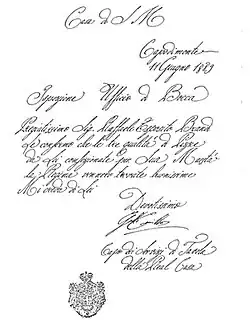 Casa di S. M.
Capodimonte
11 Giugno 1889
Ispezione Ufficio di Bocca
Pregiatissimo Sig. Raffaele Esposito Brandi
Le confermo che le tre qualità di Pizze
da Lei confezionate per Sua Maestà
la Regina vennero trovate buonissime
Mi creda di Lei
Devotissimo
Galli Camillo
Capo dei Servizi di Tavola
della Real Casa